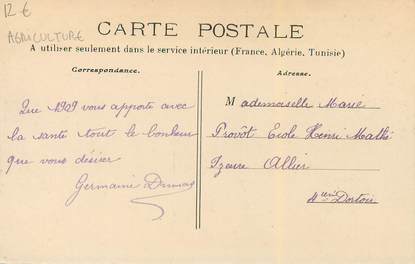 12 €
AGRICULTURE
CARTE POSTALE
A utiliser seulement dans le service intérieur (France, Algérie, Tunisie)
Correspondance.
Adresse.
Que 1909 vous apporte avec
la santé tout le bonheur
que vous désirez
Germaine Dumas
Mademoiselle Marie
Provôt Ecole Henri Mathé
Yzeure Allier
4eme Dortoir